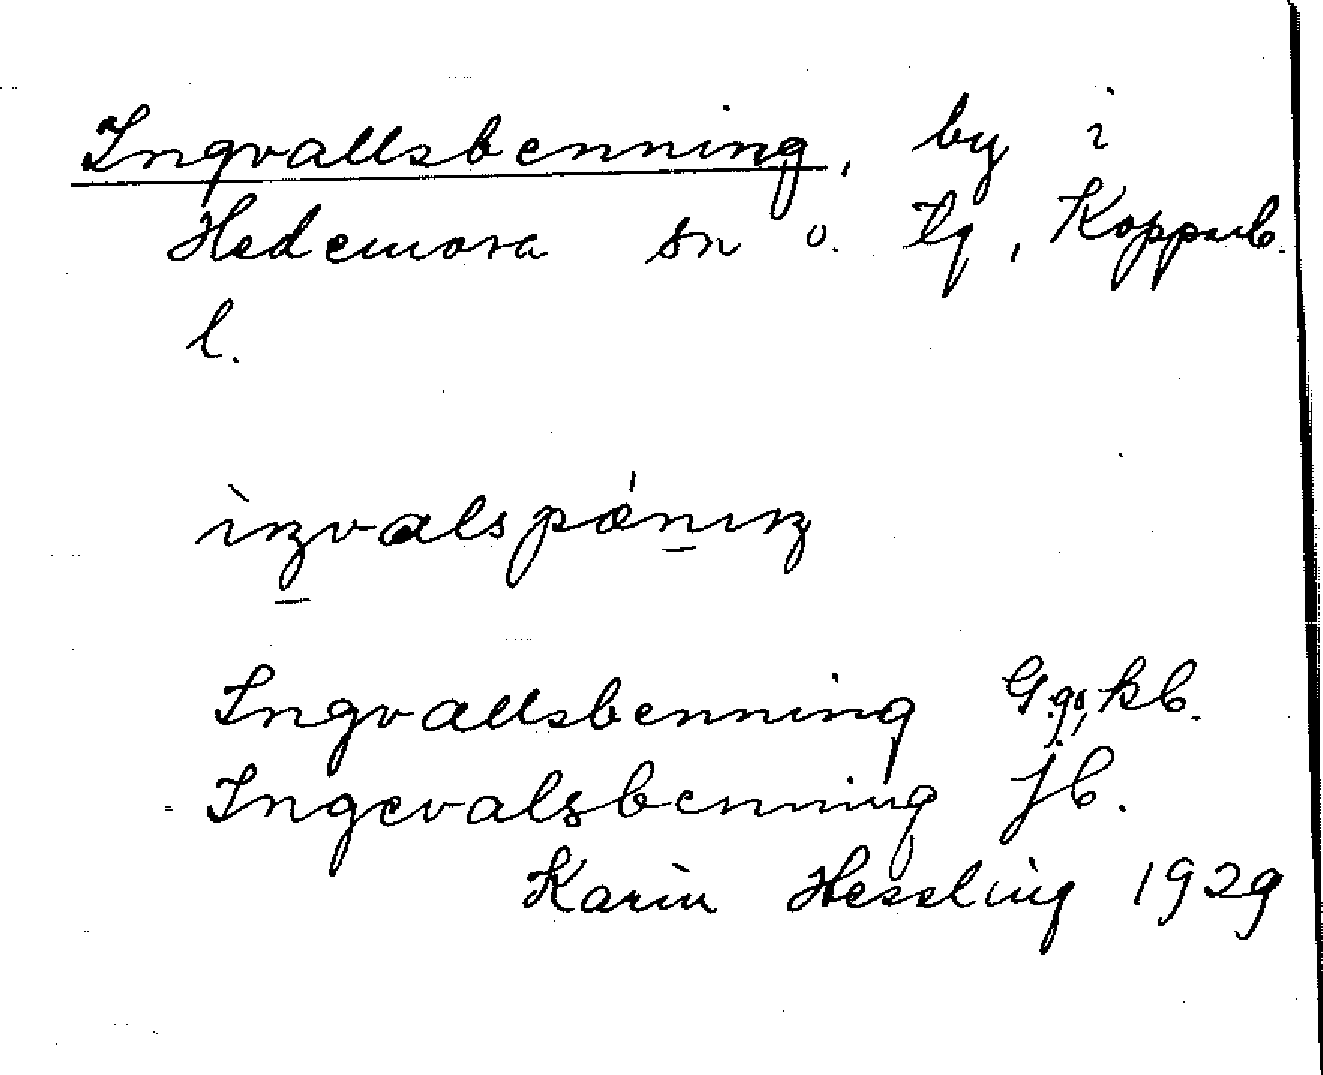 Ingvallsbenning, by i
Hedemora sn o. tg, Kopparb.
l.
ìŋvalspǽnɪŋ
Ingvallsbenning G.go, kb.
Ingevalsbenning jb.
Karin Hessling 1929